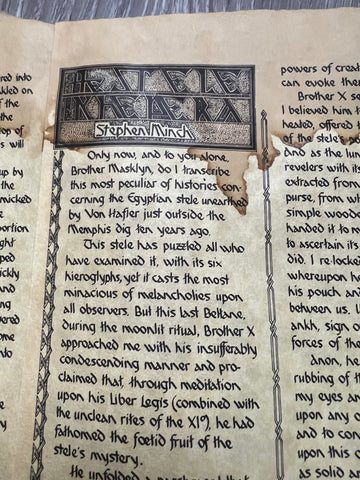 ered into
of the
the
top of
s will
up by
the
micked
portion
pped
ickly
and
STELE
KHEPERA
Stephen Minch
Only now, and to you alone,
Brother Masklyn, do I transcribe
this most peculiar of histories con-
cerning the Egyptian stele unearthed
by Von Hafler just outside the
Memphis dig ten years ago.
This stele has puzzled all who
have examined it, with its six
hieroglyphs, yet it casts the most
minacious of melancholies upon
all observers. But this last Beltane,
during the moonlit ritual, Brother X
approached me with his insufferably
condescending manner and pro-
claimed that, through meditation
upon his Liber Legis (combined with
the unclean rites of the XI°), he had
fathomed the fœtid fruit of the
stele's mystery.
He unfolded a parchment that
powers of creat
can evoke them
Brother X se
I believed him t
heated, offered
of the stele's po
and as the lu
revelers with its
extracted from
purse, from wh
simple woode
handed it to m
to ascertain its
did. I re-locked
whereupon he
his pouch and
between us. U
ankh, sign o
forces of the
Anon, he
rubbing of th
my eyes an
upon any o
and to con
upon this o
as solid a